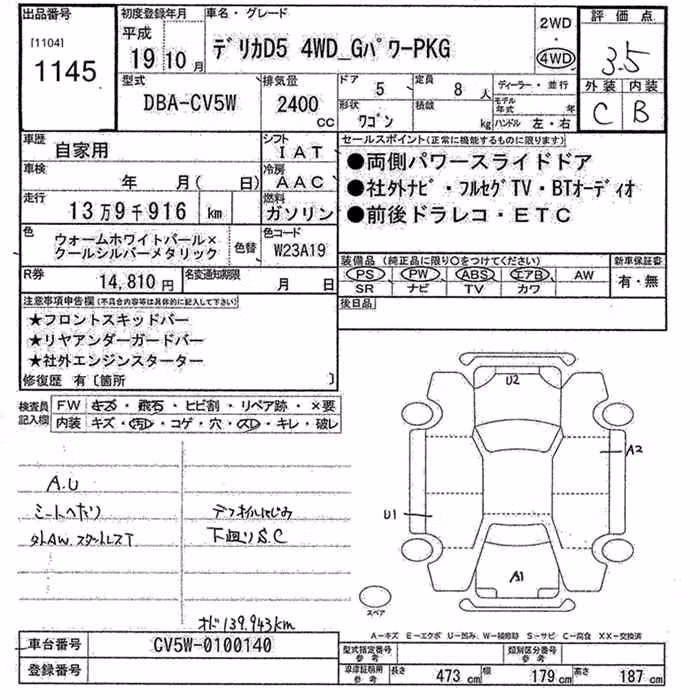 出品番号
[1104]
1145
初度登録年月
平成
19年10月
車名・グレード
デリカD5 4WD_GパワーPKG
2WD
・
4WD
評価点
3.5
外装 内装
C B
型式
DBA-CV5W
排気量
2400
cc
ドア 5
定員 8人
形状 ワゴン
積載 kg
ディーラー・並行
モデル年式 年
ハンドル 左・右
車歴 自家用
シフト IAT
車検 年 月( 日)
冷房 AAC
走行 13万9千916 km
燃料 ガソリン
色 ウォームホワイトパール×
クールシルバーメタリック
色替
色コード
W23A19
R券 14,810円
名変通知期限 月 日
セールスポイント(正常に機能するものに限ります)
●両側パワースライドドア
●社外ナビ・フルセグTV・BTオーディオ
●前後ドラレコ・ETC
装備品(純正品に限り○をつけてください)
新車保証書
PS PW ABS エアB AW
SR ナビ TV カワ
有・無
後日品
注意事項申告欄(不具合内容等は具体的に記入して下さい)
★フロントスキッドバー
★リヤアンダーガードバー
★社外エンジンスターター
修復歴 有〔箇所 〕
検査員
記入欄
FW キズ・飛石・ヒビ割・リペア跡・×要
内装 キズ・汚レ・コゲ・穴・スレ・キレ・破レ
A.U
シートへたり
外AW.スタットレスT
デフオイルにじみ
下廻りS.C
オド139.943km
U2
A2
U1
A1
スペア
A-キズ E-エクボ U-凹み W-補修跡 S-サビ C-腐食 XX-交換済
車台番号 CV5W-0100140
登録番号
型式指定番号
参考
類別区分番号
参考
車庫証明用
参考
長さ 473cm
幅 179cm
高さ 187cm